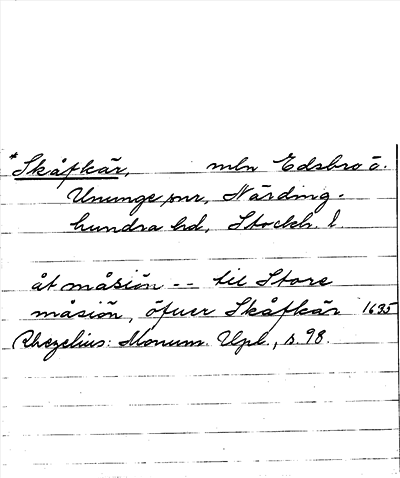 *Skåfkär, mln Edsbro o.
Ununge snr, Närding-
hundra hd, Stockh. l.
åt måsiön -- til Store
måsiön, öfuer Skåfkär 1635
Rhezelius: Monum. Upl., s. 98.